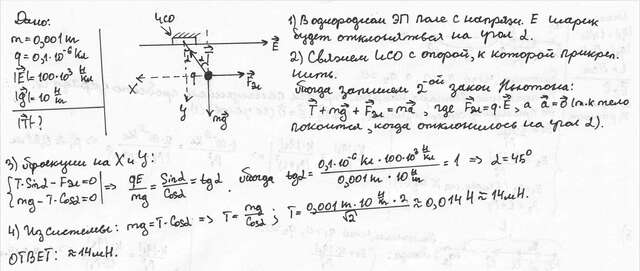 Дано:
m = 0,001 м
q = 0,1·10⁻⁶ Кл
|E⃗| = 100·10³ Н/Кл
|g⃗| = 10 Н/м
|T⃗| - ?
ИСО
E⃗
T⃗
α
q
X
F⃗эл
Y
mg⃗
1) В однородном ЭП поле с напряж. E шарик
будет отклоняться на угол α.
2) Свяжем ИСО с опорой, к которой прикреп.
нить.
Тогда запишем 2-ой закон Ньютона:
T⃗ + mg⃗ + F⃗эл = ma⃗, где F⃗эл = q·E⃗, а a⃗ = 0⃗ (т.к тело
покоится, когда отклонилось на угол α).
3) Проекции на X и Y:
{T·Sinα - Fэл = 0
{mg - T·Cosα = 0
=> qE/mg = Sinα/Cosα = tgα. Тогда tgα = 0,1·10⁻⁶ Кл · 100·10³ Н/Кл / 0,001 м · 10 Н/м = 1 => α = 45°
4) Из системы: mg = T·Cosα => T = mg/Cosα; T = 0,001 м · 10 Н/м · 2 / √2 ≈ 0,014 Н ≈ 14 мН.
ОТВЕТ: ≈ 14 мН.